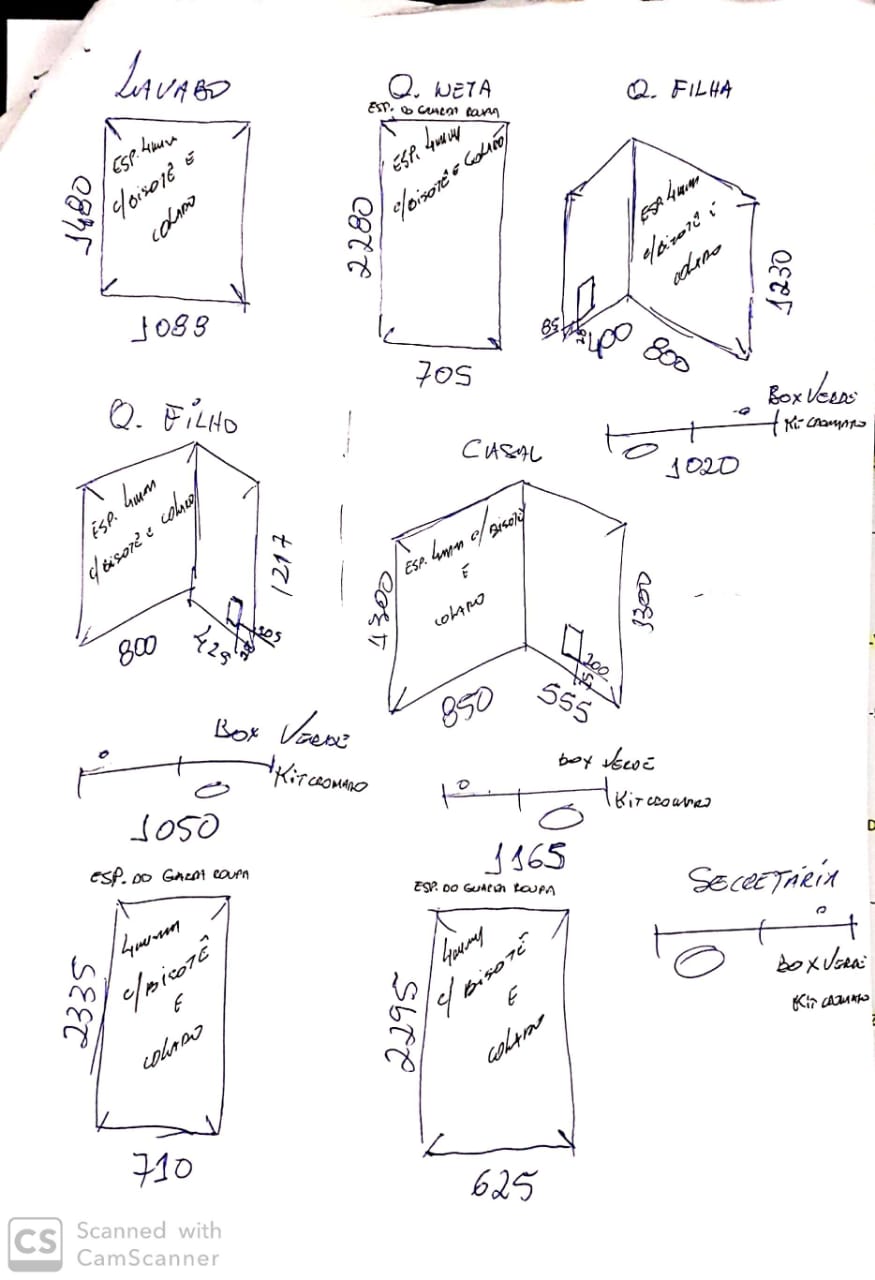 LAVABO
ESP. 4mm
c/ BISOTÊ E
COLADO
1480
1088
Q. NETA
ESP. DO GUARDA ROUPA
ESP. 4mm
c/ BISOTÊ E COLADO
2280
705
Q. FILHA
ESP. 4mm
c/ BISOTÊ E
COLADO
1230
85
400
800
BOX VERDE
KIT CROMADO
1020
Q. FILHO
ESP. 4mm
c/ BISOTÊ E COLADO
1217
800
425
105
BOX VERDE
KIT CROMADO
1050
CASAL
ESP. 4mm c/ BISOTÊ
E
COLADO
1300
1300
850
555
200
BOX VERDE
KIT CROMADO
1165
ESP. DO GUARDA ROUPA
4mm
c/ BISOTÊ
E
COLADO
2335
710
ESP. DO GUARDA ROUPA
4mm
c/ BISOTÊ
E
COLADO
2295
625
SECRETÁRIA
BOX VERDE
KIT CROMADO
CS
Scanned with
CamScanner